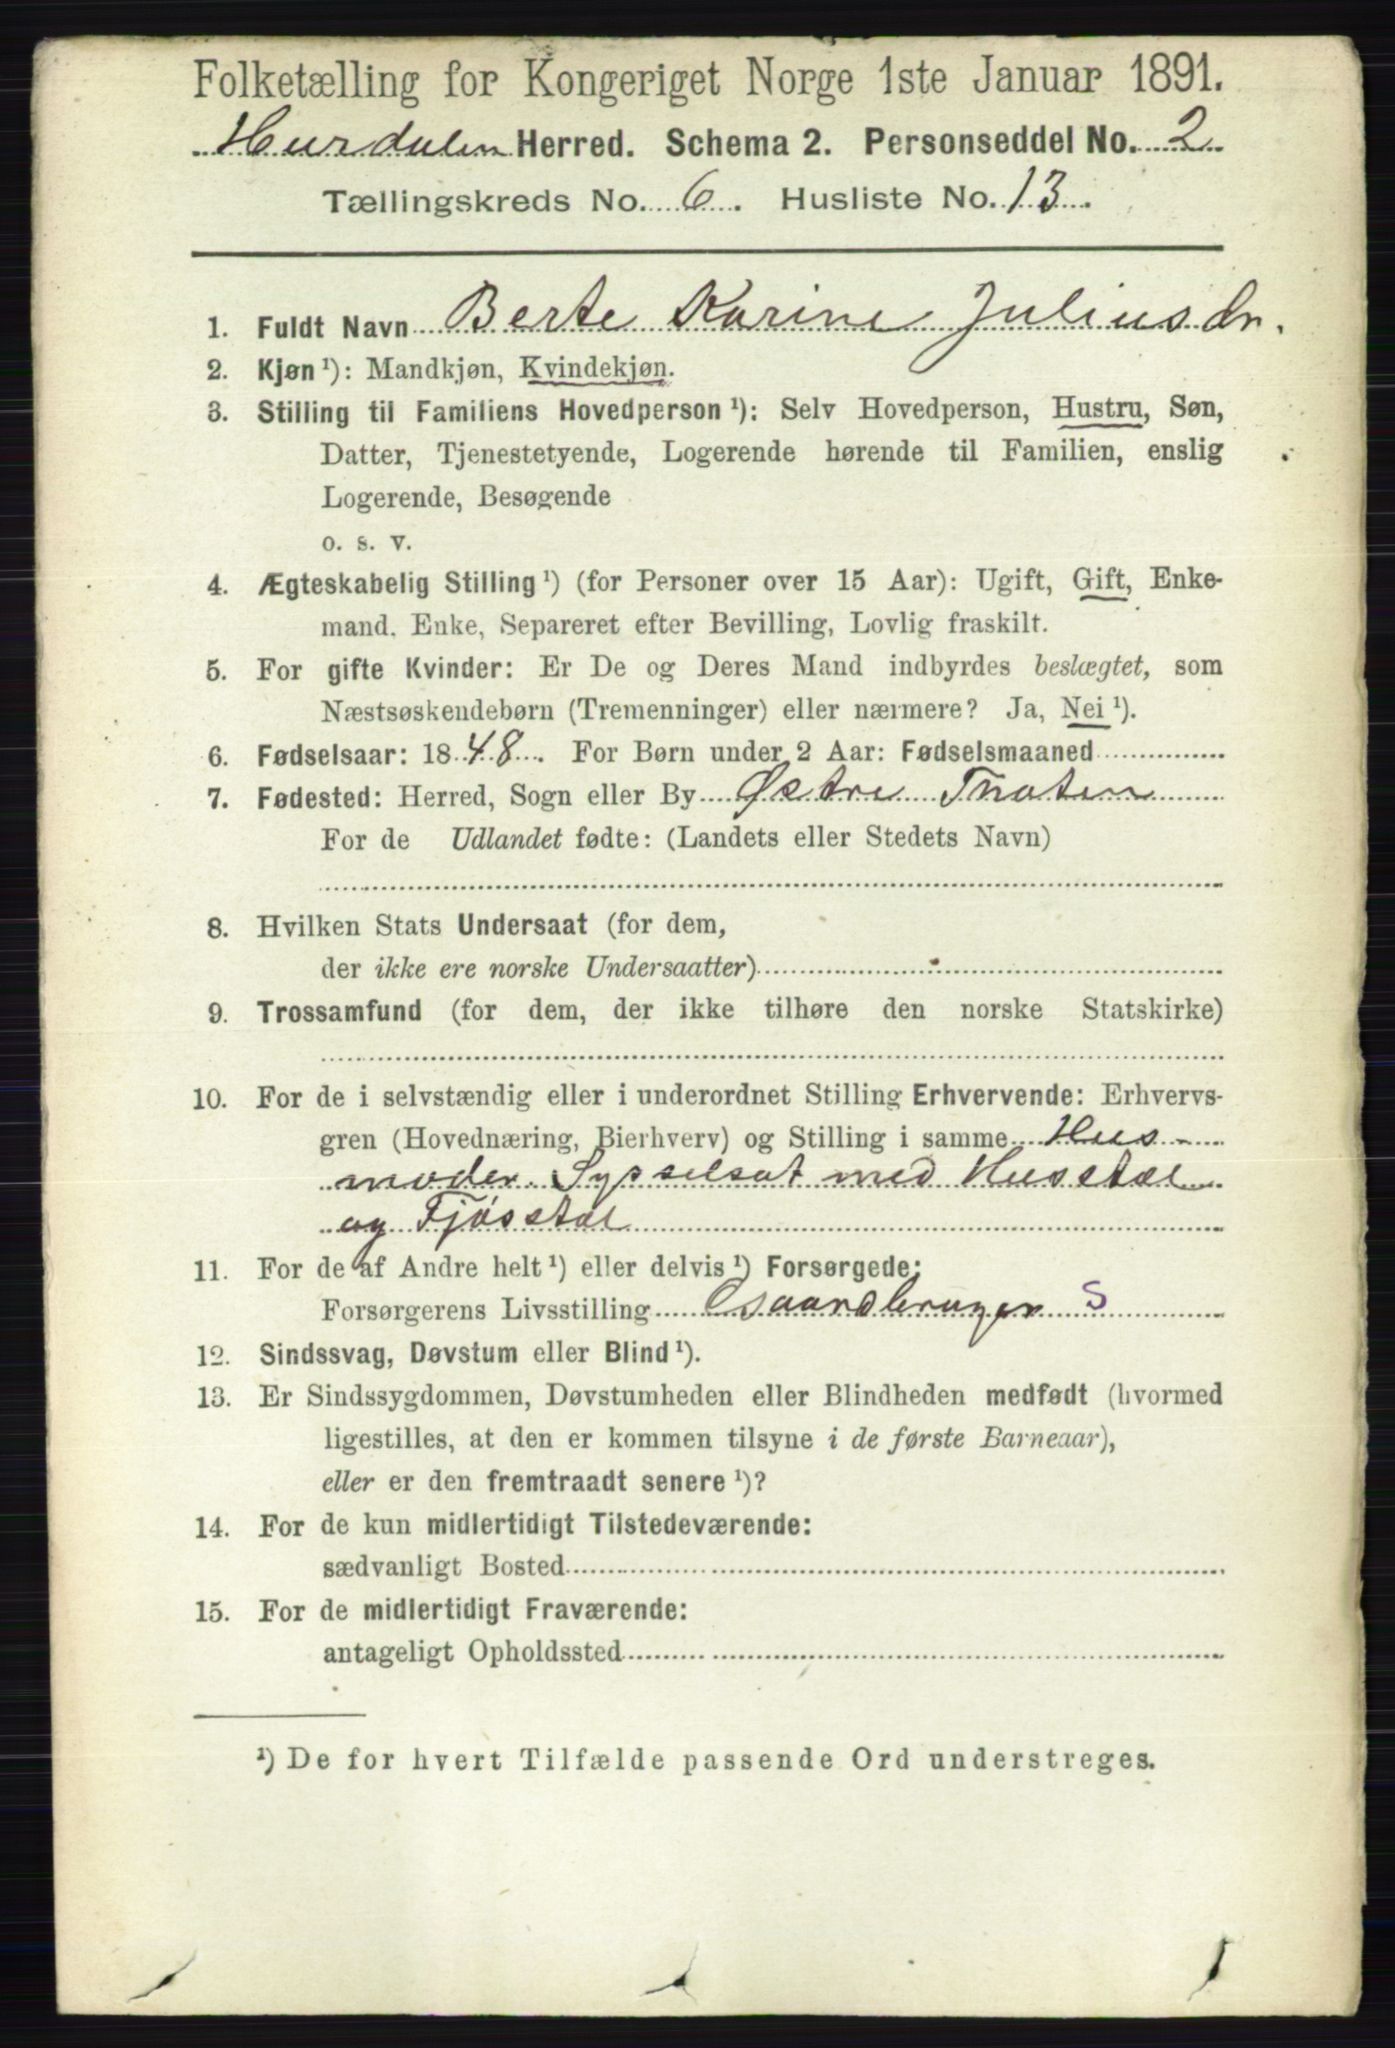 Folketælling for Kongeriget Norge 1ste Januar 1891.
Hurdalen Herred. Schema 2. Personseddel No. 2
Tællingskreds No. 6. Husliste No. 13.
1. Fuldt Navn Berte Karine Juliusdr.
2. Kjøn ¹): Mandkjøn, Kvindekjøn.
3. Stilling til Familiens Hovedperson ¹): Selv Hovedperson, Hustru, Søn,
Datter, Tjenestetyende, Logerende hørende til Familien, enslig
Logerende, Besøgende
o. s. v.
4. Ægteskabelig Stilling ¹) (for Personer over 15 Aar): Ugift, Gift, Enke-
mand, Enke, Separeret efter Bevilling, Lovlig fraskilt.
5. For gifte Kvinder: Er De og Deres Mand indbyrdes beslægtet, som
Næstsøskendebørn (Tremenninger) eller nærmere? Ja, Nei ¹).
6. Fødselsaar: 1848. For Børn under 2 Aar: Fødselsmaaned
7. Fødested: Herred, Sogn eller By Østre Thoten
For de Udlandet fødte: (Landets eller Stedets Navn)
8. Hvilken Stats Undersaat (for dem,
der ikke ere norske Undersaatter)
9. Trossamfund (for dem, der ikke tilhøre den norske Statskirke)
10. For de i selvstændig eller i underordnet Stilling Erhvervende: Erhvervs-
gren (Hovednæring, Bierhverv) og Stilling i samme Hus-
moder. Sysselsat med Husstæl
og Fjøsstæl
11. For de af Andre helt ¹) eller delvis ¹) Forsørgede:
Forsørgerens Livsstilling Gaardbruger S
12. Sindssvag, Døvstum eller Blind ¹).
13. Er Sindssygdommen, Døvstumheden eller Blindheden medfødt (hvormed
ligestilles, at den er kommen tilsyne i de første Barneaar),
eller er den fremtraadt senere ¹)?
14. For de kun midlertidigt Tilstedeværende:
sædvanligt Bosted
15. For de midlertidigt Fraværende:
antageligt Opholdssted
¹) De for hvert Tilfælde passende Ord understreges.